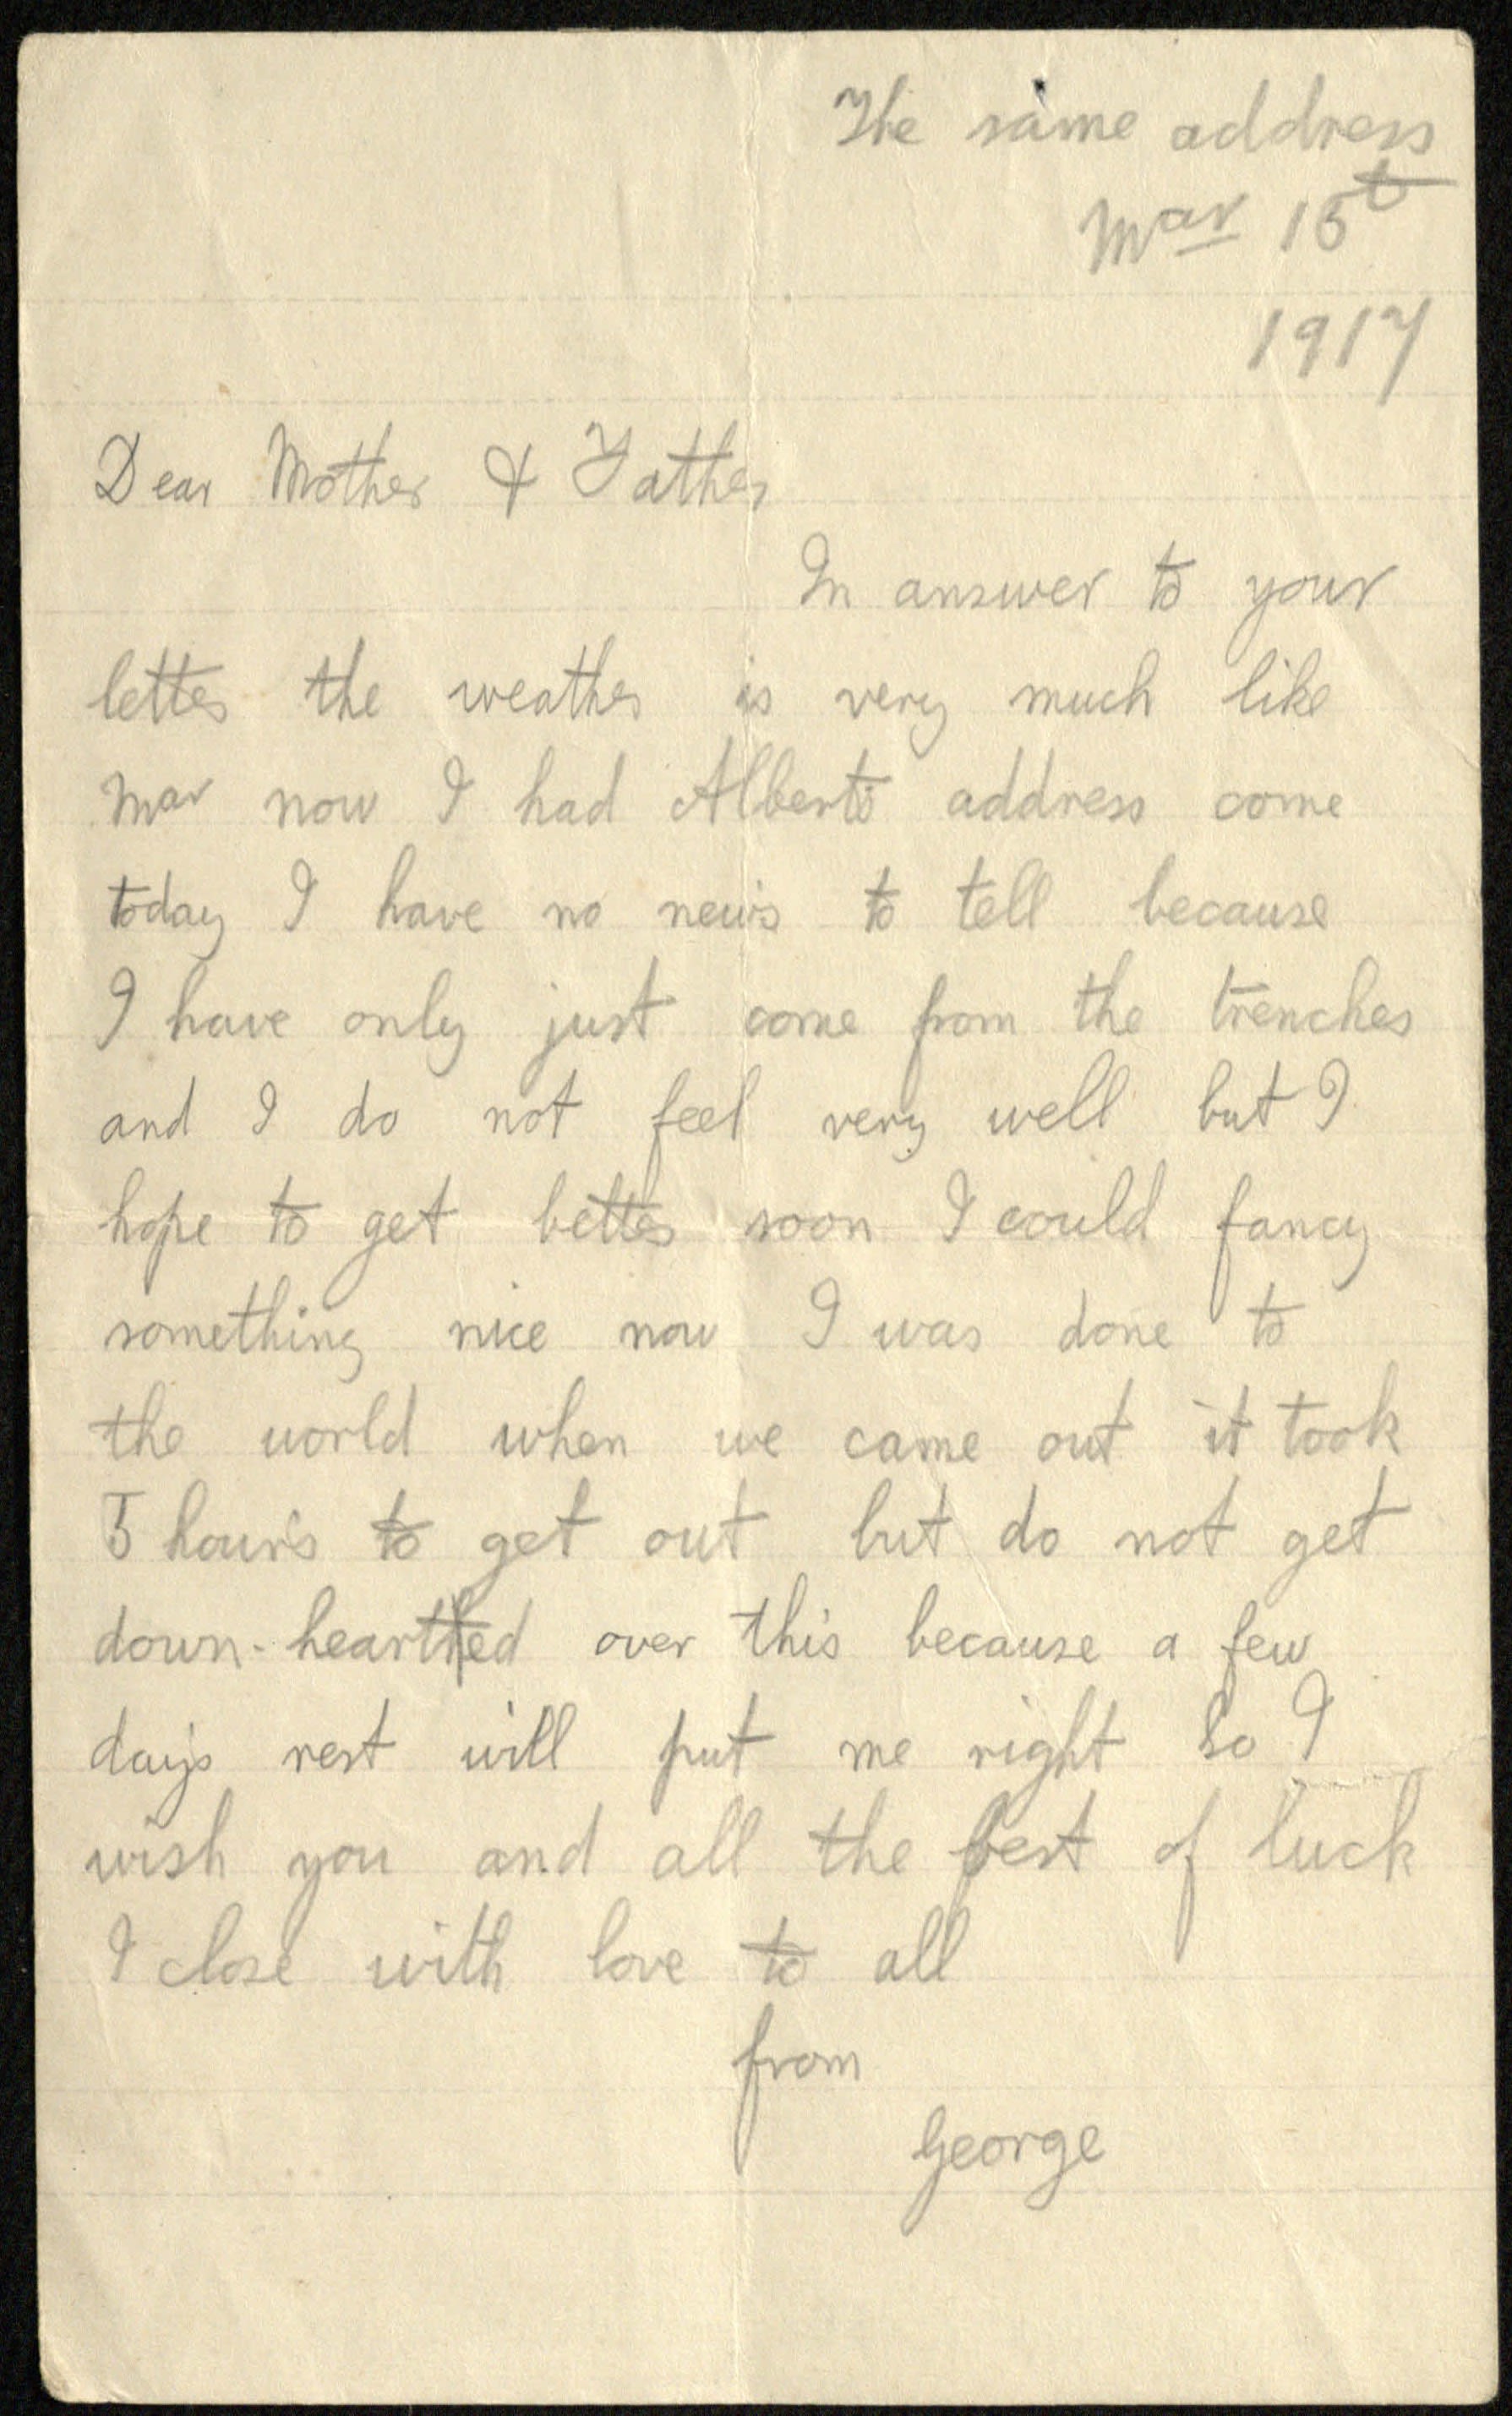 The same address
Mar 15t
1917
Dear Mother & Father
In answer to your
letter the weather is very much like
Mar now I had Alberts address come
today I have no news to tell because
I have only just come from the trenches
and I do not feel very well but I
hope to get better soon I could fancy
something nice now I was done to
the world when we came out it took
5 hours to get out but do not get
down-hearthed over this because a few
days rest will put me right So I
wish you and all the best of luck
I close with love to all
from
George